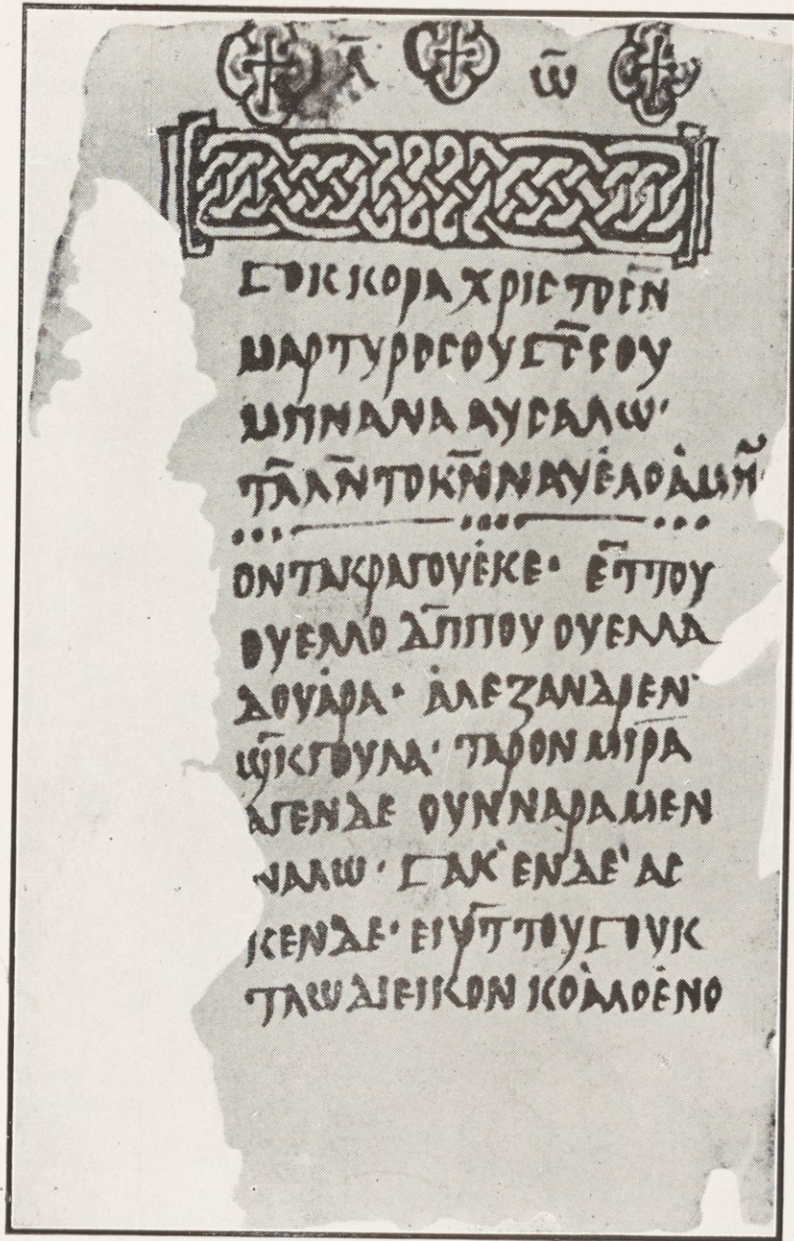 ⲁ̄ ⲱ̄
ⳟⲟⲕⲕⲟⲣⲁ ⲭⲣⲓⲥⲧⲟⲥⲛ̄
ⲙⲁⲣⲧⲩⲣⲟⲥⲟⲩ ⳟⲥ̄ⲥⲟⲩ
ⲙⲏⲛⲁⲛⲁ ⲁⲩⲥⲁⲗⲱ·
ⲧⲁ̄ⲗⲛ̄ ⲧⲟⲕⲛ̄ⲛⲁⲩⲉ̇ⲗⲟ ⲁ̇ⲙⲏ̄ⲛ
ⲟⲛ ⲧⲁⲕⲣⲁⲅⲟⲩⲉ̇ⲕⲉ· ⲉ̄ⲧⲧⲟⲩ
ⲟⲩⲉⲗⲗⲟ ⲇ̄ⲡⲡⲟⲩ ⲟⲩⲉⲗⲗⲁ
ⲇⲟⲩⲁ̇ⲣⲁ· ⲁ̇ⲗⲉⲝⲁⲛⲇⲣⲉⲛ
ϣⲓ̄ⲕⲅⲟⲩⲗⲁ· ⲧⲁⲣⲟⲛ ⲙⲓ̄ⲣⲁ
ⲁⲅⲉⲛⲇⲉ ⲟⲩⲛⲛⲁⲣⲁ ⲙⲉⲛ
ⲛⲁⲗⲱ· ⳟⲁⲕ ⲉⲛⲇⲉ ⲁⲥ
ⲕⲉⲛⲇⲉ· ⲉⲓⲣⲧ̄ⲧⲟⲩ ⳟⲟⲩⲕ
ⲧⲗⲱ ⲇⲓⲉⲓⲕⲟⲛ ⲕⲟⲁ̇ⲗⲟ ⲉ̇ⲛⲟ